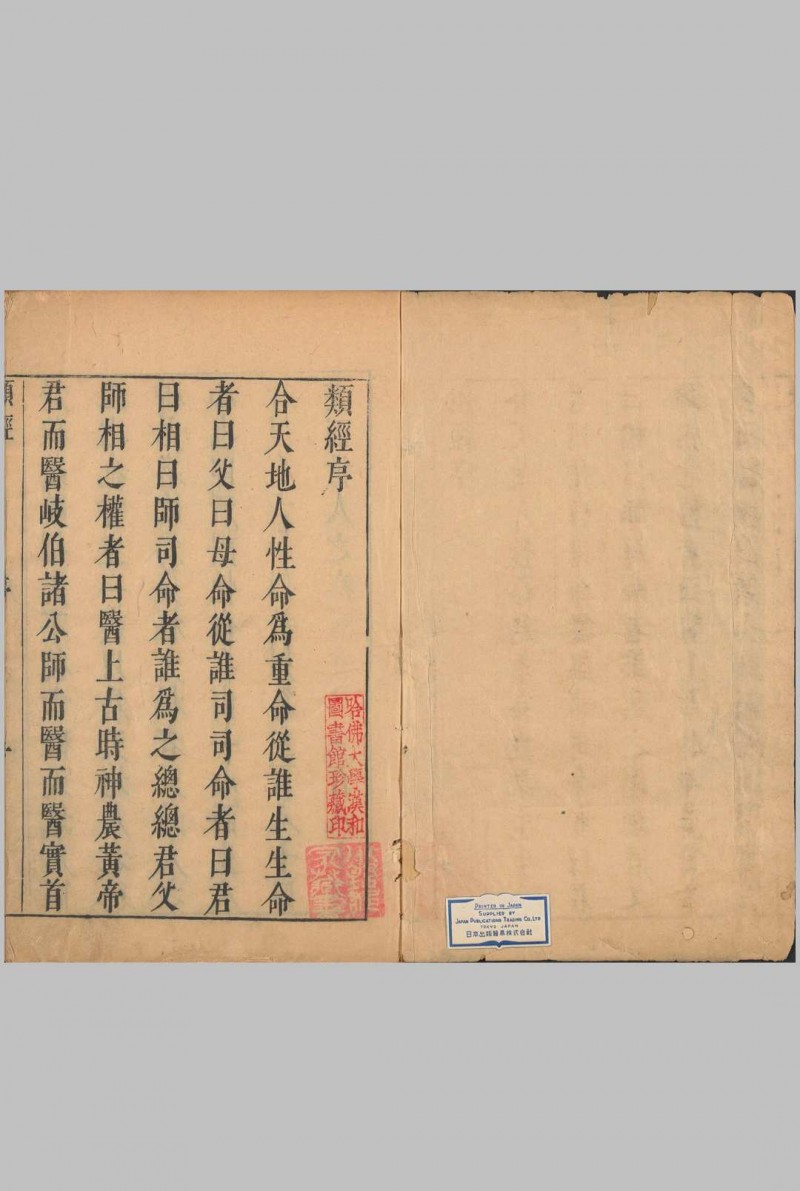 類經序
合天地人性命爲重命從誰生生命
者曰父曰母命從誰司司命者曰君
曰相曰師司命者誰爲之總總君父
師相之權者曰醫上古時神農黃帝
君而醫岐伯諸公師而醫而醫實首
類經
序
一
哈佛大學漢和
圖書館珍藏印
PRINTED IN JAPAN
SUPPLIED BY
JAPAN PUBLICATIONS TRADING CO., LTD
TOKYO JAPAN
日本出版貿易株式会社